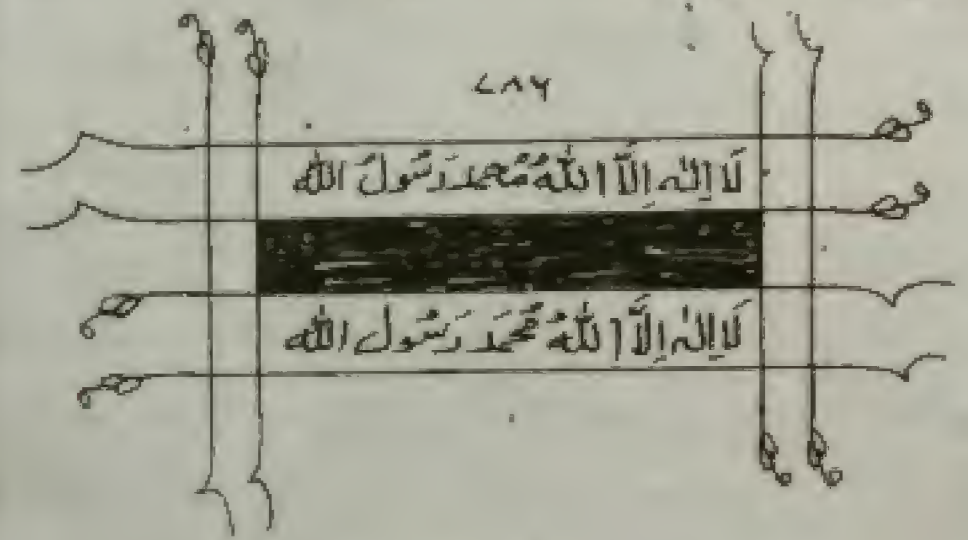 ۷۸۶
لَا اِلٰہَ اِلَّا اللّٰهُ مُحَمَّد رَسُولُ اللّٰه
لَا اِلٰہَ اِلَّا اللّٰهُ مُحَمَّد رَسُولُ اللّٰه